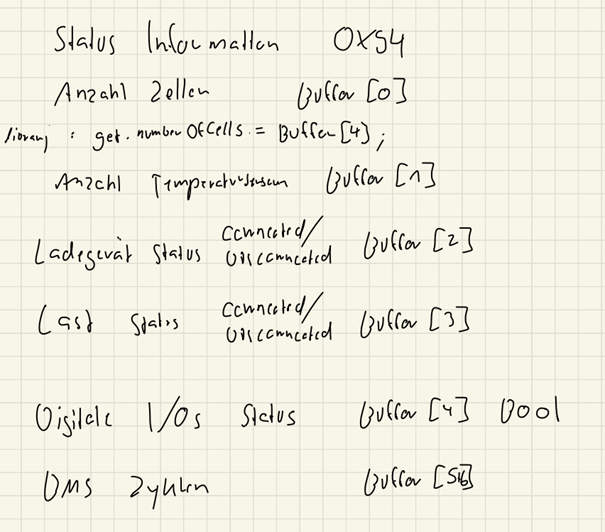 Status Information 0x94
Anzahl Zellen Buffer [0]
library : get.numberOfCells = Buffer[4];
Anzahl Temperatursensoren Buffer [1]
Ladegerät Status connected/ disconnected Buffer [2]
Last Status connected/ disconnected Buffer [3]
Digitale I/Os Status Buffer [4] Bool
BMS Zyklen Buffer [5,6]